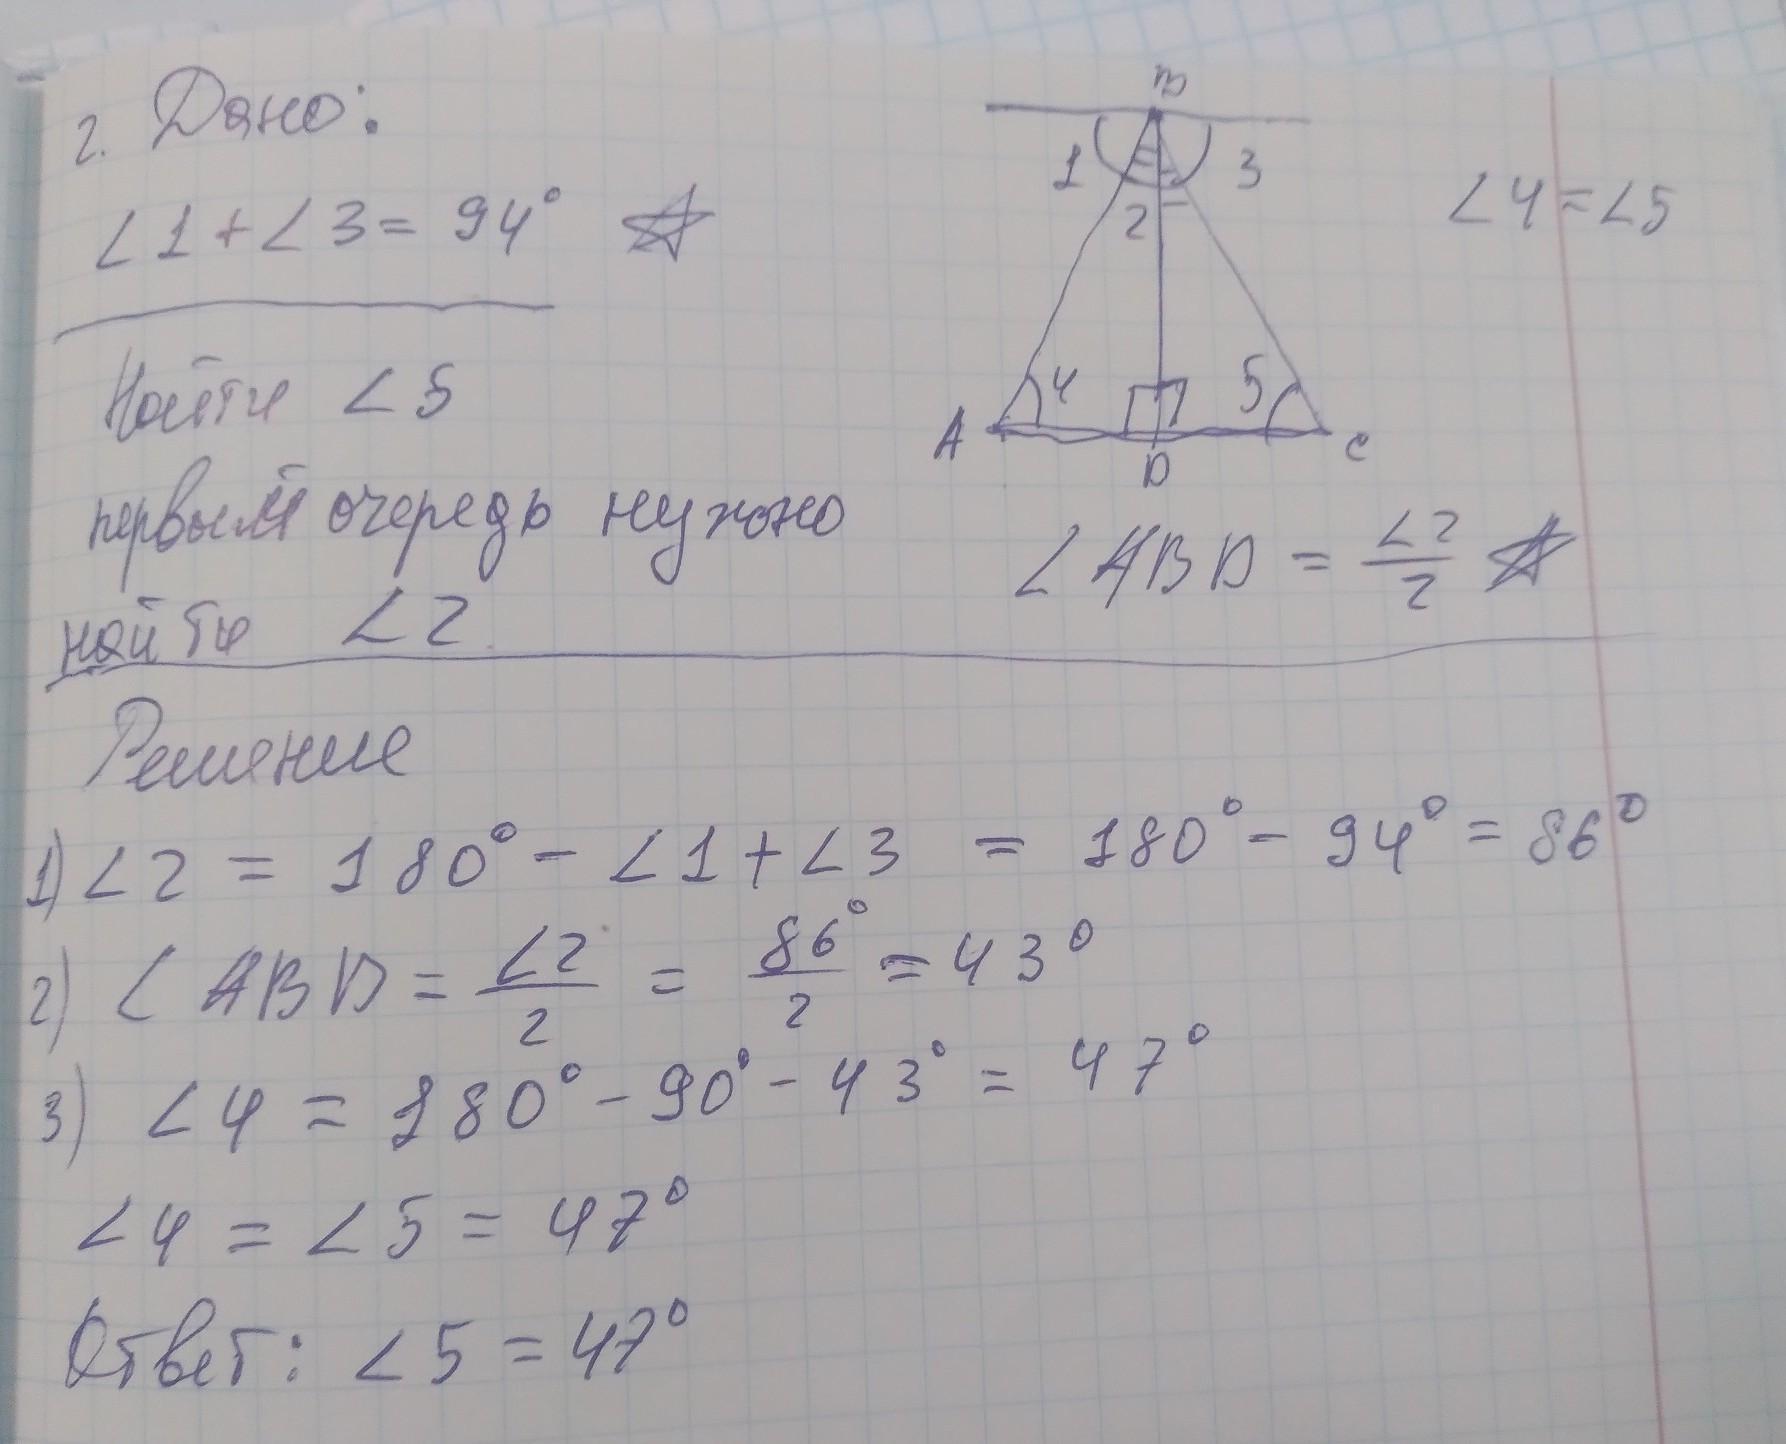 2. Дано:
∠1+∠3=94° ☆
Найти ∠5
первым очередь нужно
найти ∠2.
B
1 3
2
4 5
A D C
∠4=∠5
∠ABD = ∠2/2 ☆
Решение
1) ∠2 = 180° - ∠1+∠3 = 180° - 94° = 86°
2) ∠ABD = ∠2/2 = 86°/2 = 43°
3) ∠4 = 180° - 90° - 43° = 47°
∠4 = ∠5 = 47°
Ответ: ∠5 = 47°